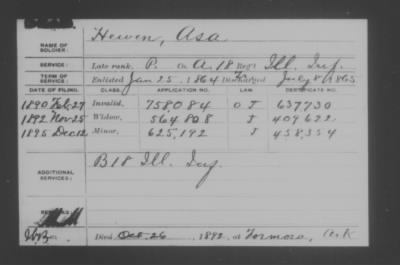 NAME OF SOLDIER: Hewen, Asa
SERVICE: Late rank, P. Co. A, 18 Reg't Ill. Inf.
TERM OF SERVICE: Enlisted Jan 25, 1864 Discharged July 8, 1865
DATE OF FILING. CLASS. APPLICATION NO. LAW. CERTIFICATE NO.
1890 Feb 27 Invalid, 758084 O J 637730
1892 Nov 25 Widow, 564808 J 409622
1895 Dec 12 Minor, 625,192 J 458,354
ADDITIONAL SERVICES: B 18 Ill. Inf.
Died Oct. 26, 1892, at Formosa, Ark